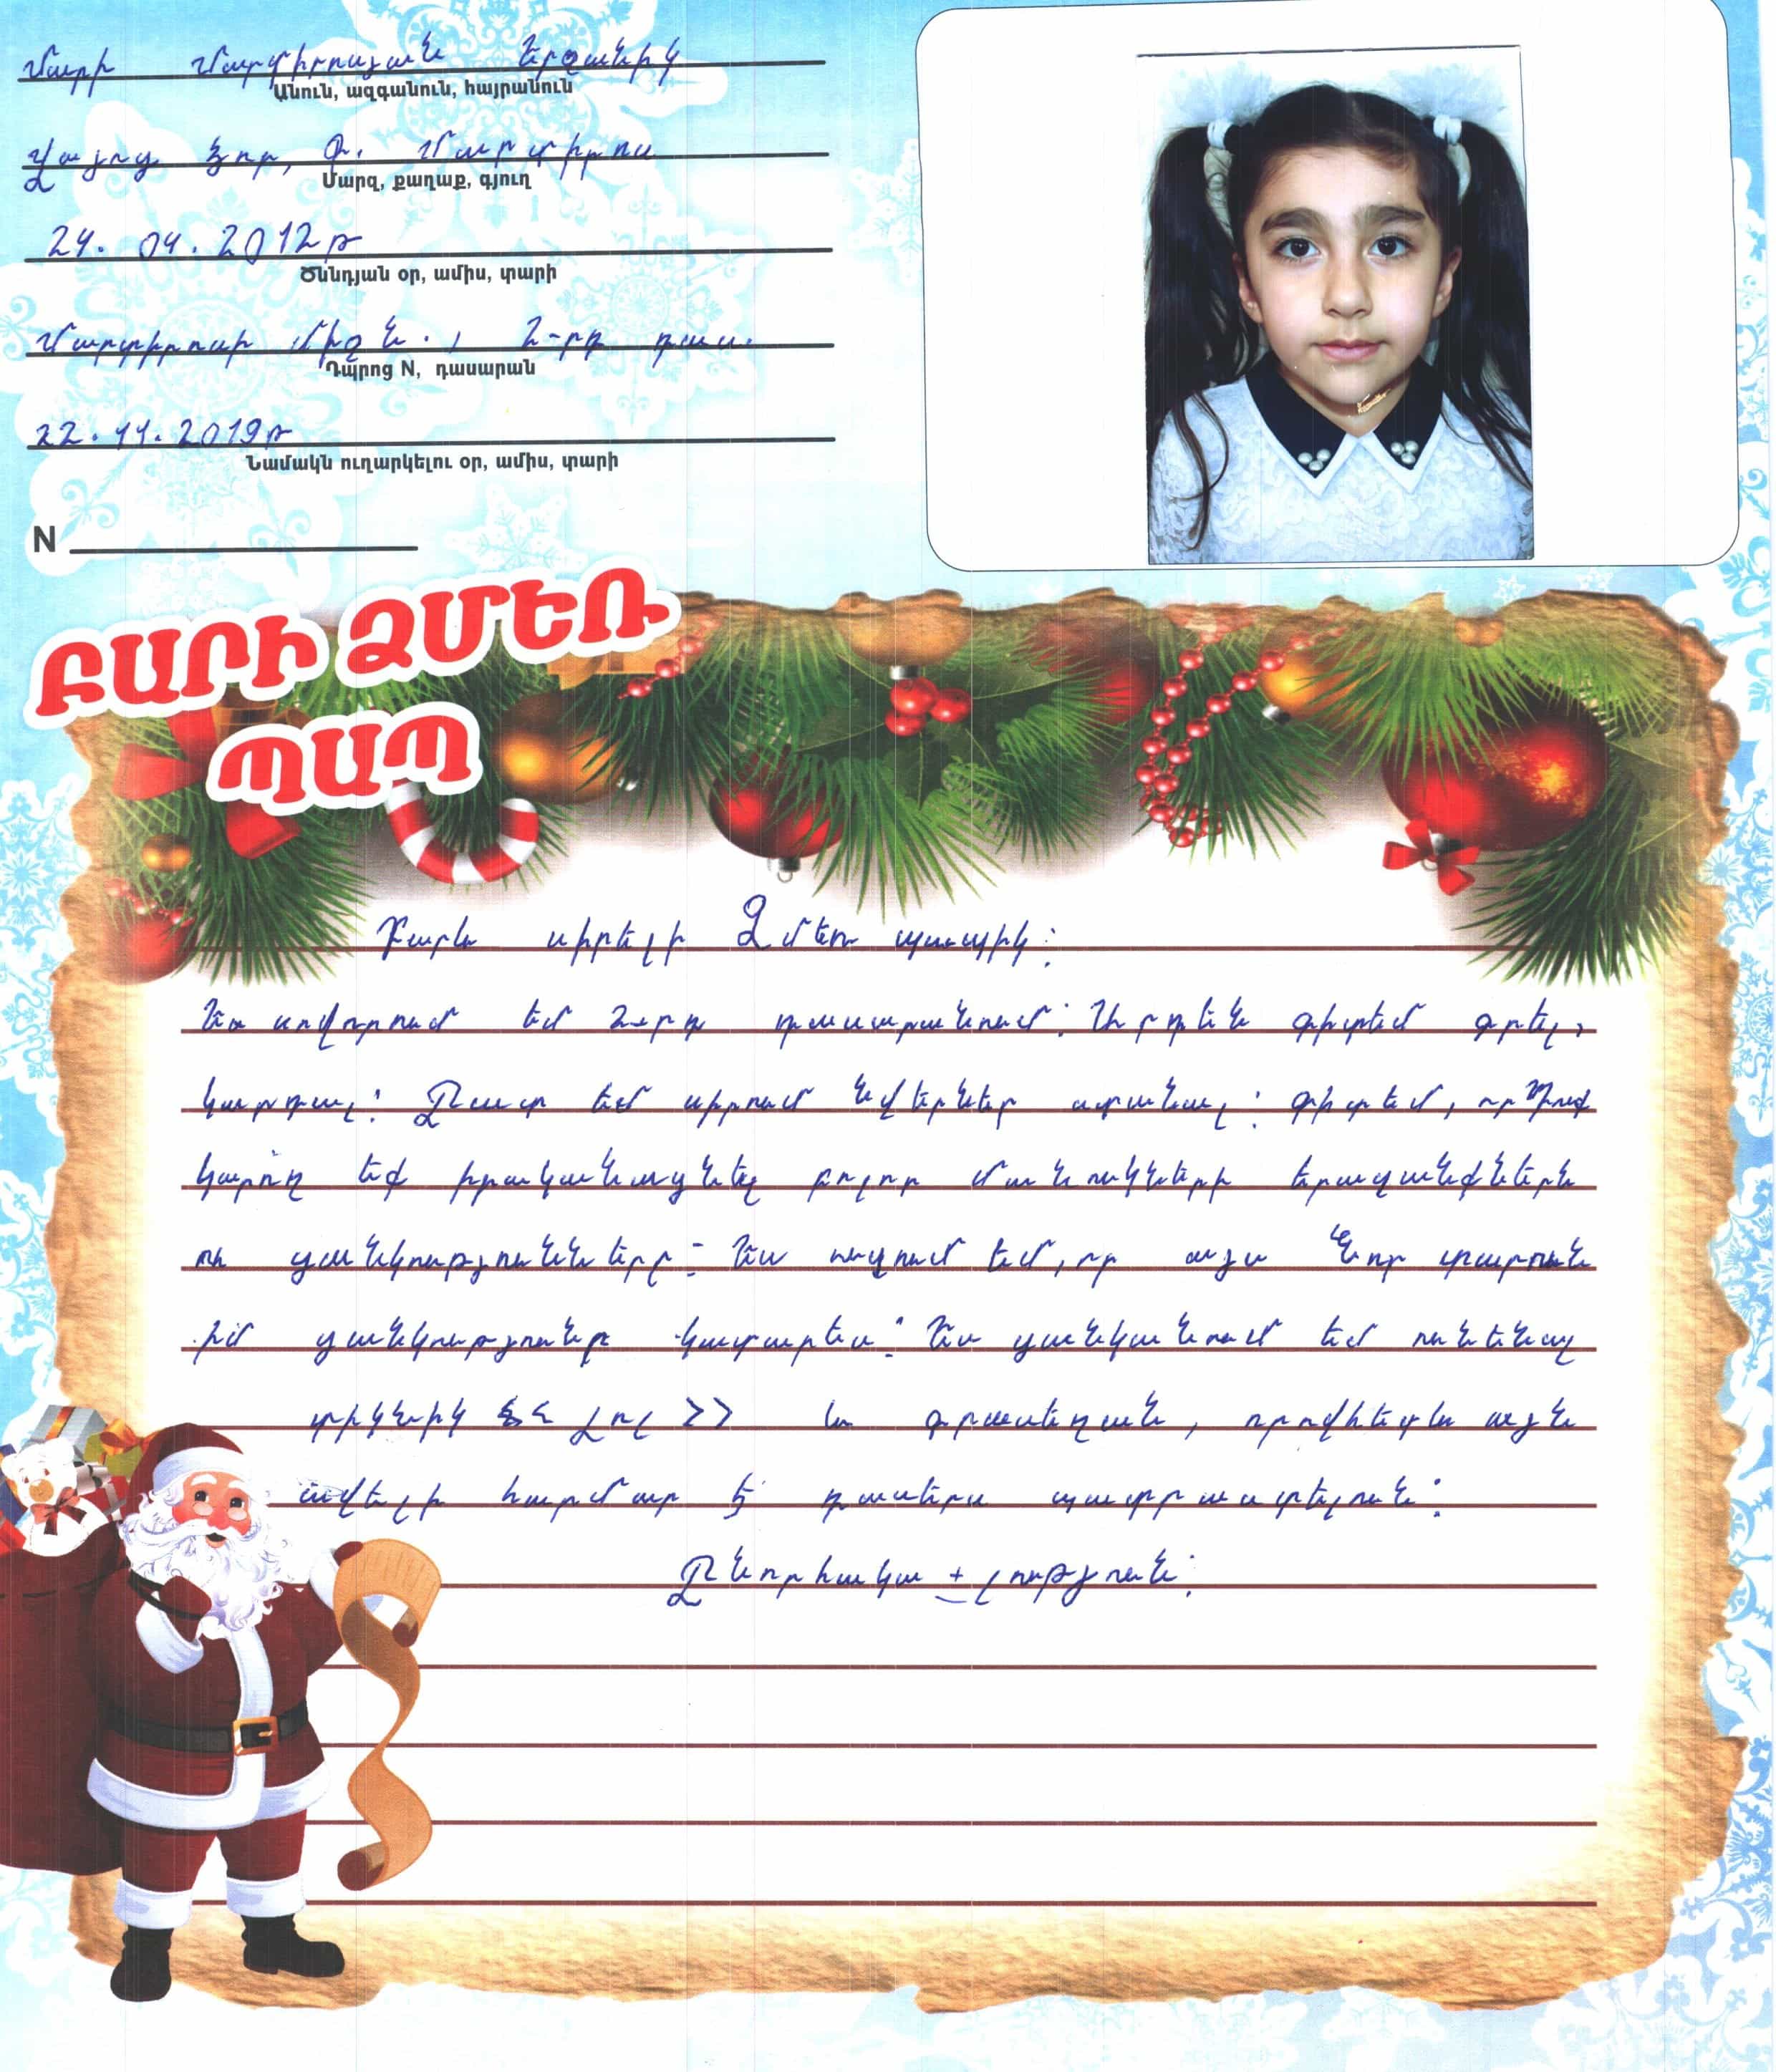 Մարի Մարտիրոսյան Երջանիկ
Անուն, ազգանուն, հայրանուն
Վայոց ձոր, գ. Մարտիրոս
Մարզ, քաղաք, գյուղ
24. 04. 2012թ
Ծննդյան օր, ամիս, տարի
Մարտիրոսի միջն. , 2-րդ դաս.
Դպրոց N, դասարան
22. 11. 2019թ
Նամակն ուղարկելու օր, ամիս, տարի
N
ԲԱՐԻ ՁՄԵՌ
ՊԱՊ
Բարև սիրելի Ձմեռ պապիկ:
Ես սովորում եմ 2-րդ դասարանում: Արդեն գիտեմ գրել,
կարդալ: Շատ եմ սիրում նվերներ ստանալ: գիտեմ, որ Դուք
կարող եք իրականացնել բոլոր մանուկների երազանքներն
ու ցանկությունները: Ես ուզում եմ, որ այս Նոր տարուն
իմ ցանկությունը կատարես: Ես ցանկանում եմ ունենալ
տիկնիկ << Լոլ >> և գրասեղան, որովհետև այն
ավելի հարմար է դասերս պատրաստելուն:
Շնորհակալություն: